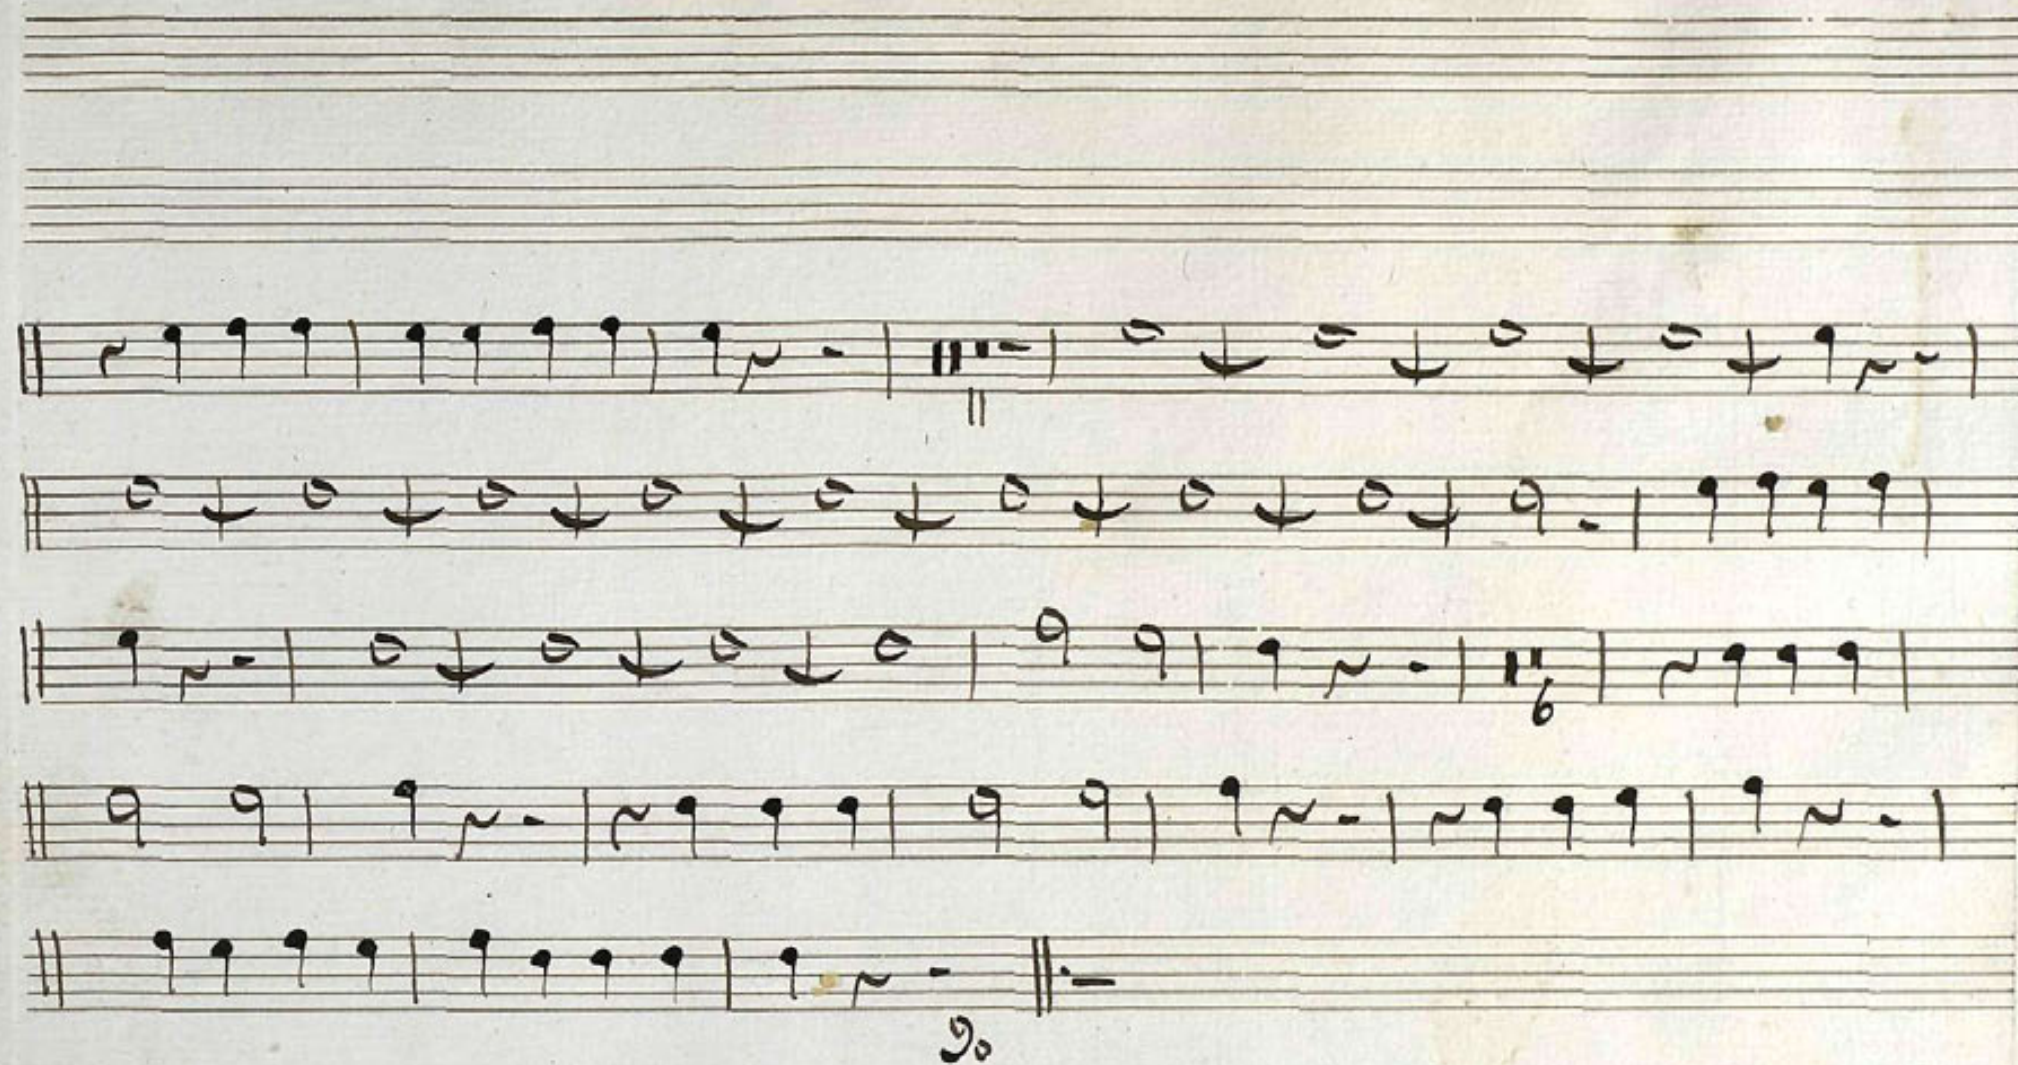 11
6
90